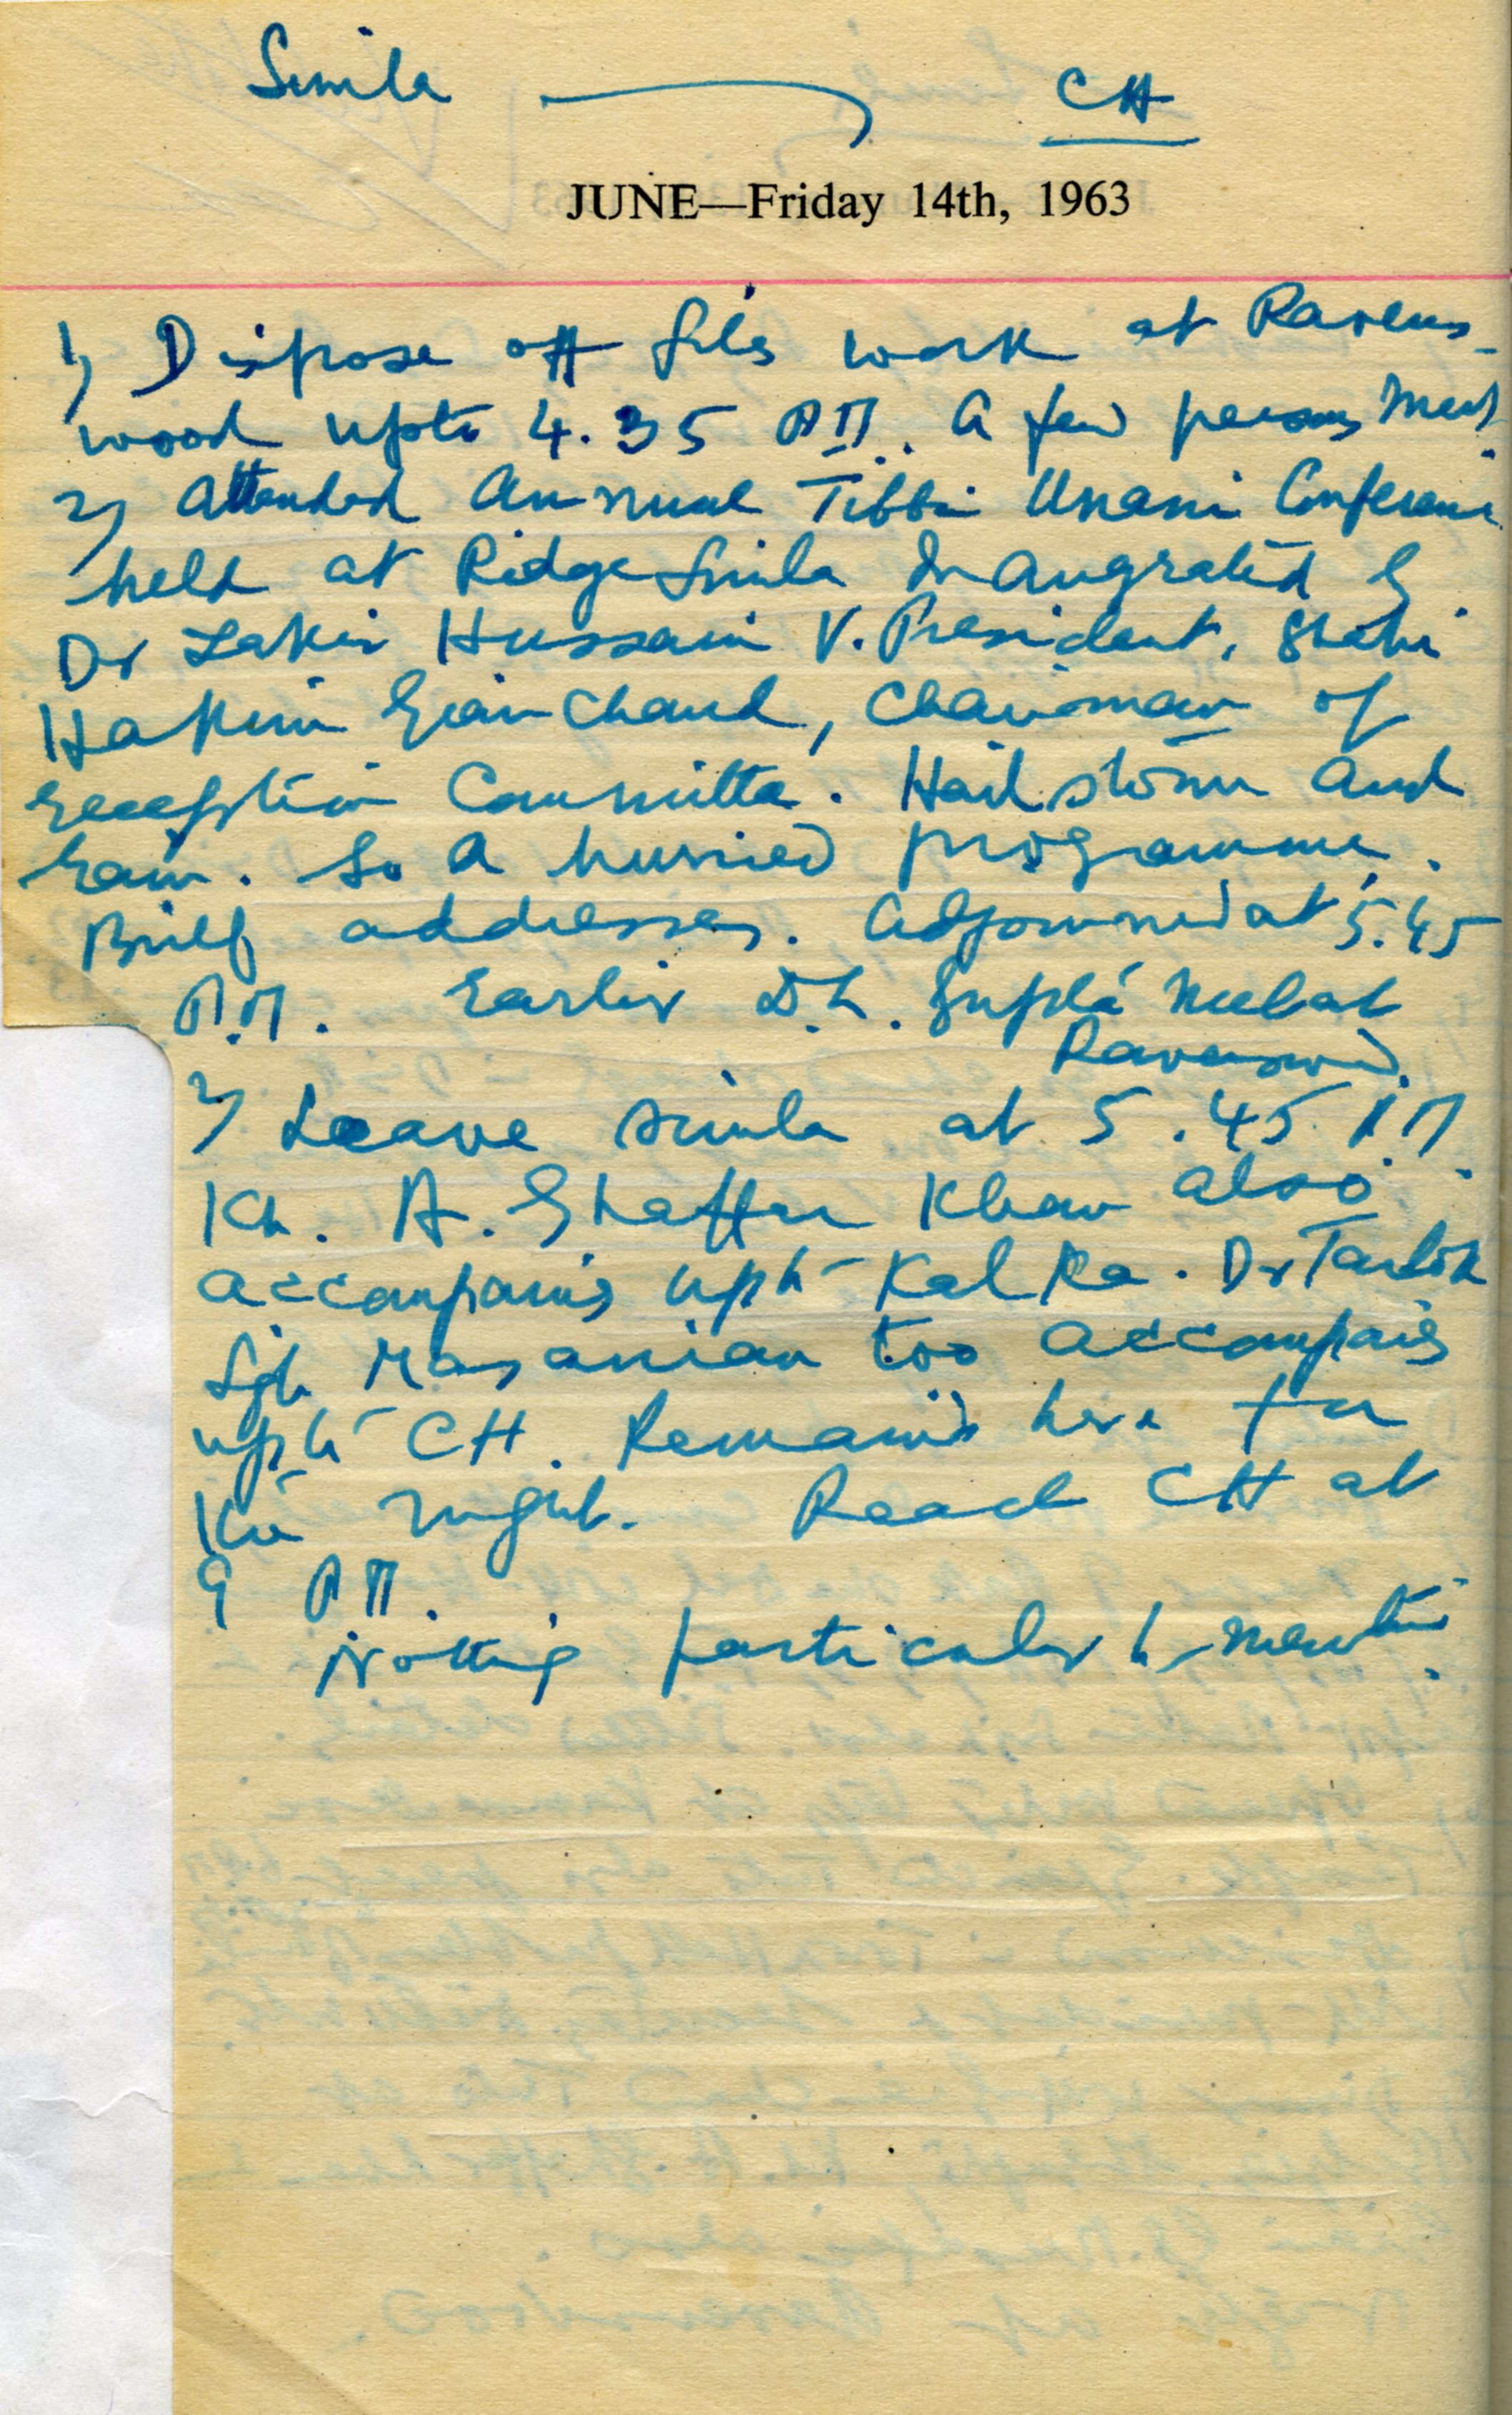 Simla CH
JUNE—Friday 14th, 1963
1) Dispose off files work at Ravens-
wood upto 4.35 PM. A few persons meet.
2) Attended Annual Tibbi Unani Conference
held at Ridge Simla Inaugrated by
Dr Zakir Hussain V. President,
Hakim Gian Chand, Chairman of
reception Committee. Hail storm and
rain. So a hurried programme.
Brief addresses. Adjourned at 5.45
P.M. Earlier D.L. Gupta meet at
Ravenswood.
3) Leave Simla at 5.45 PM.
Kh. A. Ghaffar Khan also
accompanies upto Kalka. Dr Tarlok
Sgh too accompanies
upto CH. Remained here for
the night. Reach CH at
9 PM.
Nothing particular to mention.